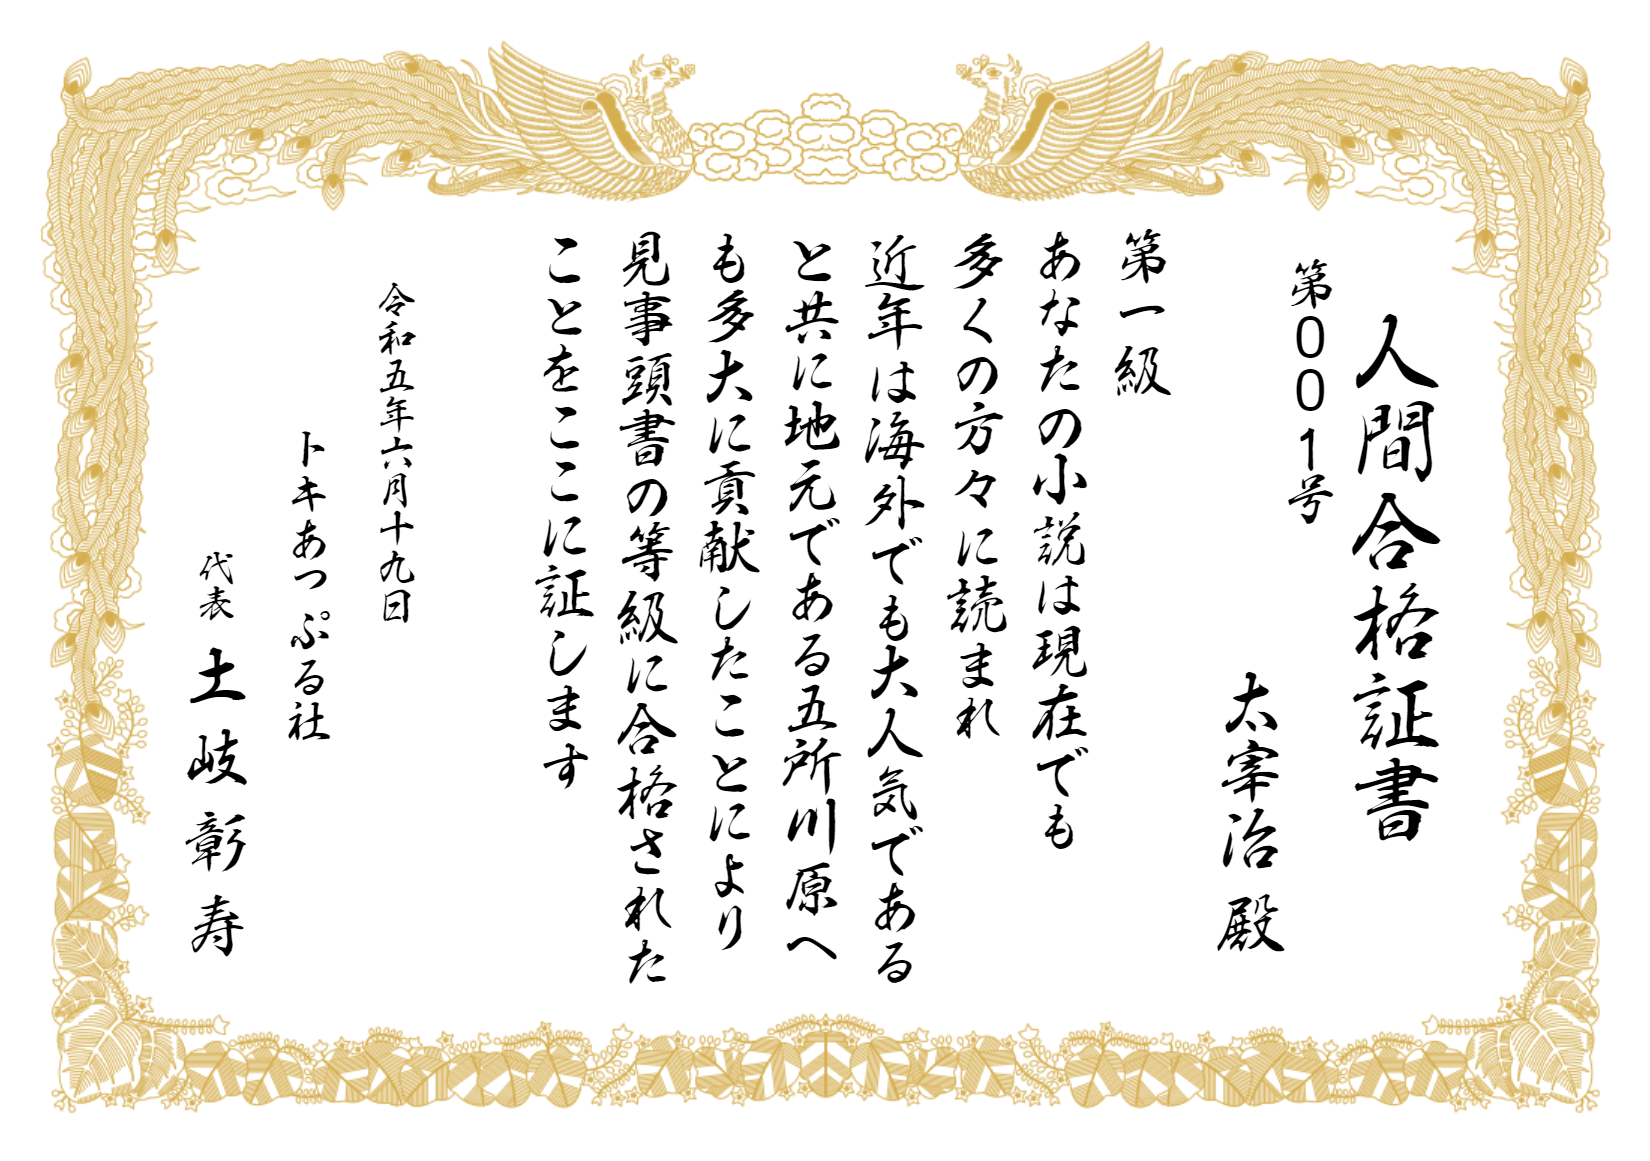 人間合格証書
第００１号
太宰治 殿
第一級
あなたの小説は現在でも
多くの方々に読まれ
近年は海外でも大人気である
と共に地元である五所川原へ
も多大に貢献したことにより
見事頭書の等級に合格された
ことをここに証します
令和五年六月十九日
トキあっぷる社
代表 土岐彰寿